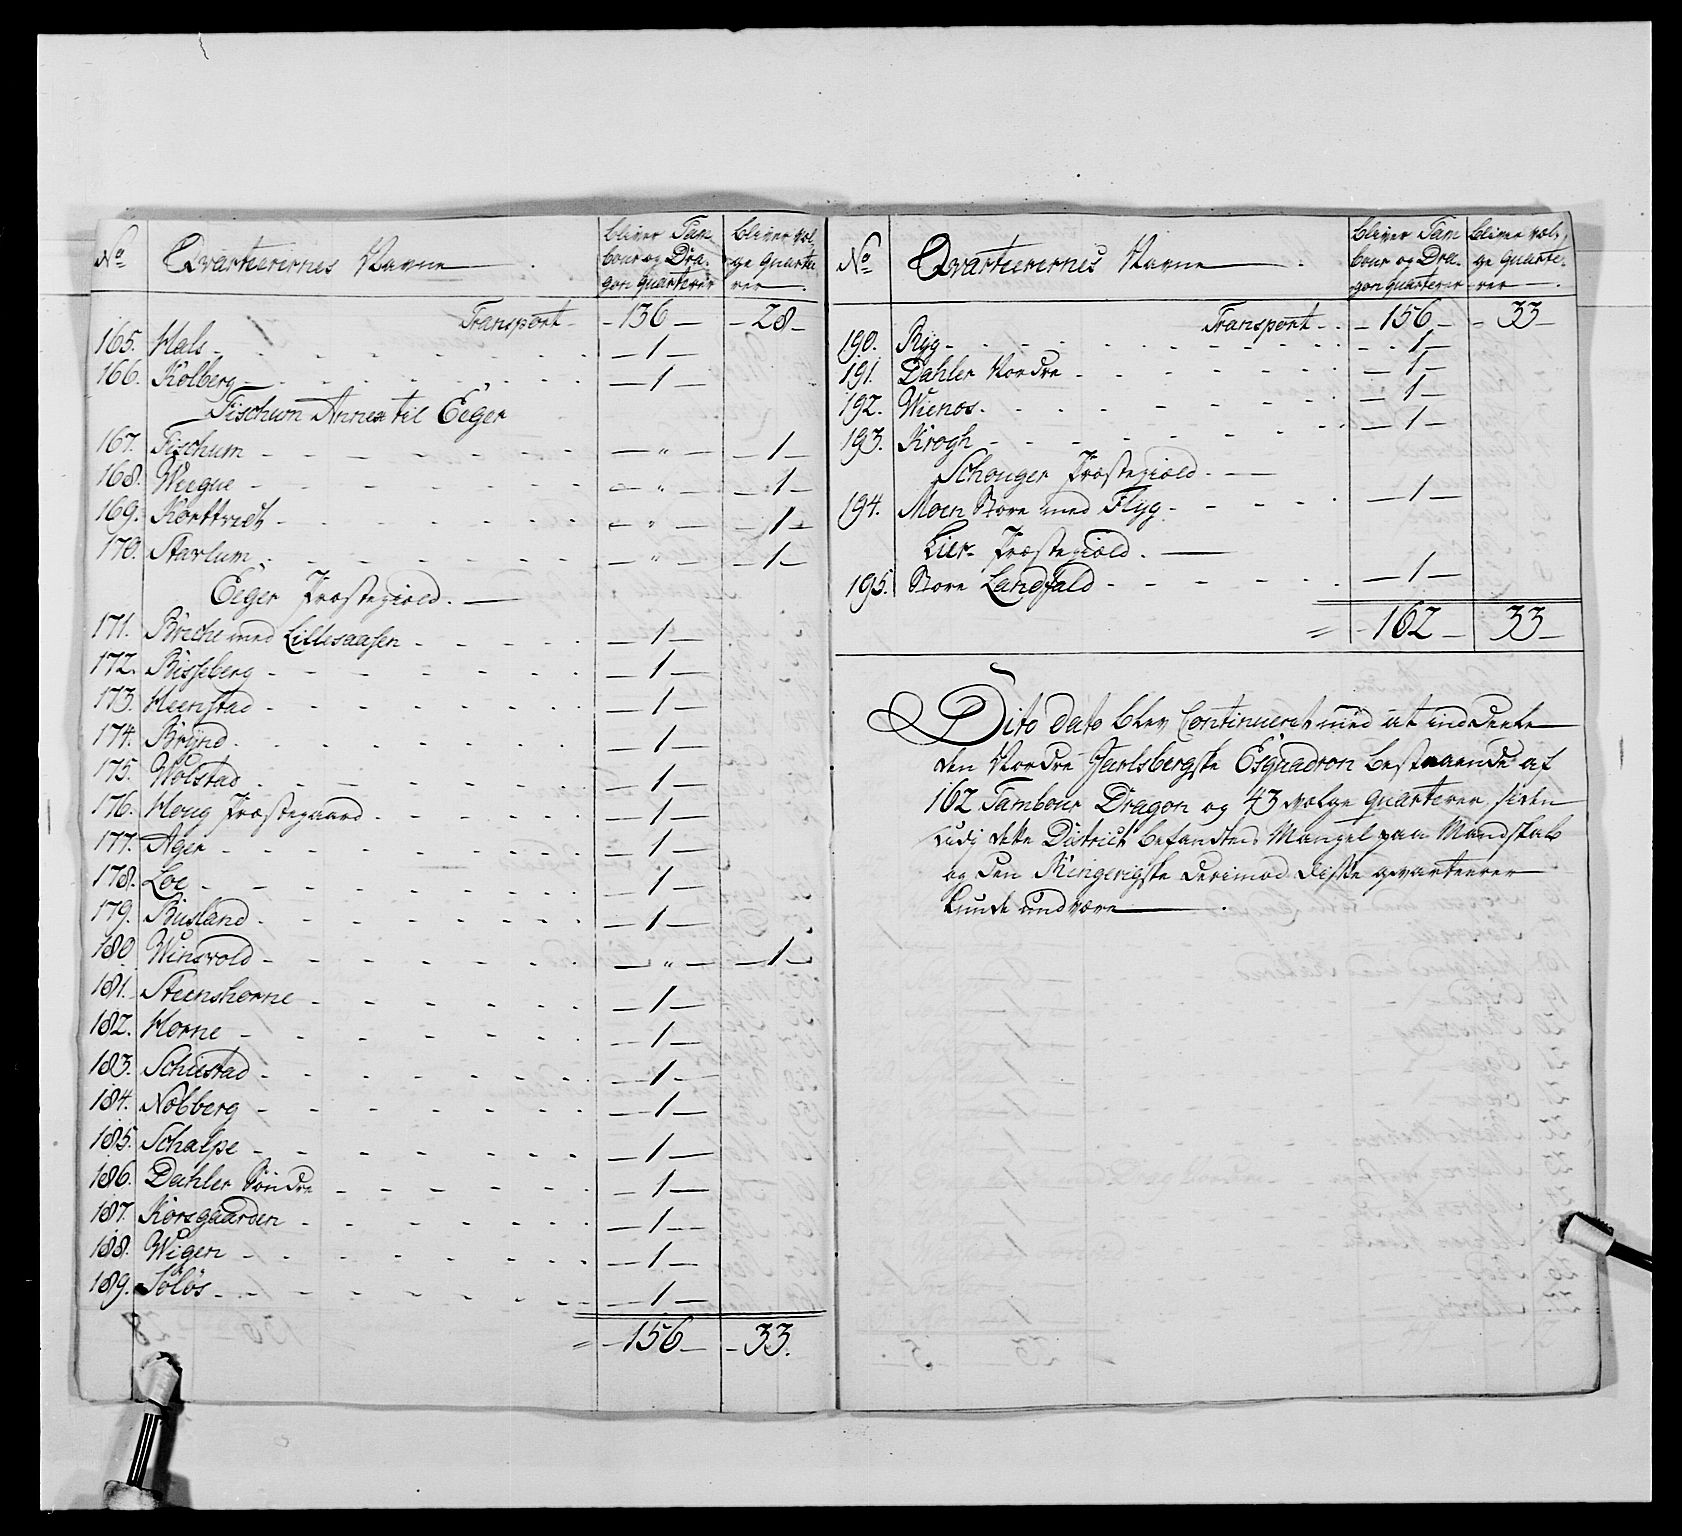 No Qvarteerernes Navne bliver Tam- bliver væl-
bour og Dra- ge Quarte-
gon quarterer rer
Transport 136 28
165. Hals 1
166. Kolberg 1
Fischum Annex til Eeger
167. Fischum " 1
168. Weque " 1
169. Korttvedt " 1
170. Starlum " 1
Eeger Præstegield.
171. Breche med Lillesaasen 1
172. Bisseberg 1
173. Heenstad 1
174. Brÿnd 1
175. Wolstad 1
176. Houg Præstegaard 1
177. Ager 1
178. Loe 1
179. Busland 1
180. Winsvold " 1
181. Steenshorne 1
182. Horne 1
183. Schiestad 1
184. Nobberg 1
185. Schalpe 1
186. Dahler Søndre 1
187. Korsgaarden 1
188. Wigen 1
189. Soløs 1
= 156 33.
No Qvarteerernes Navne bliver Tam- bliver væl-
bour og Dra- ge Quarte-
gon quarterer rer
Transport 156 33
190. Ryg 1
191. Dahler Nordre 1
192. Wienæs 1
193. Krogh 1
Schouger Præstegield.
194. Moen Store med Flyg 1
Lier Præstegield.
195. Store Landfald 1
= 162 33
Dito Dato blev Continueret med at inddeele
den Nordre Jarlsbergske Esquadron bestaaende af
162 Tambour Dragon og 43 vælge quarterer, siden
udi dette District befandtes Mangel paa Mandskab
og den Ringerigske derimod disse qvarteerer
kunde undvære